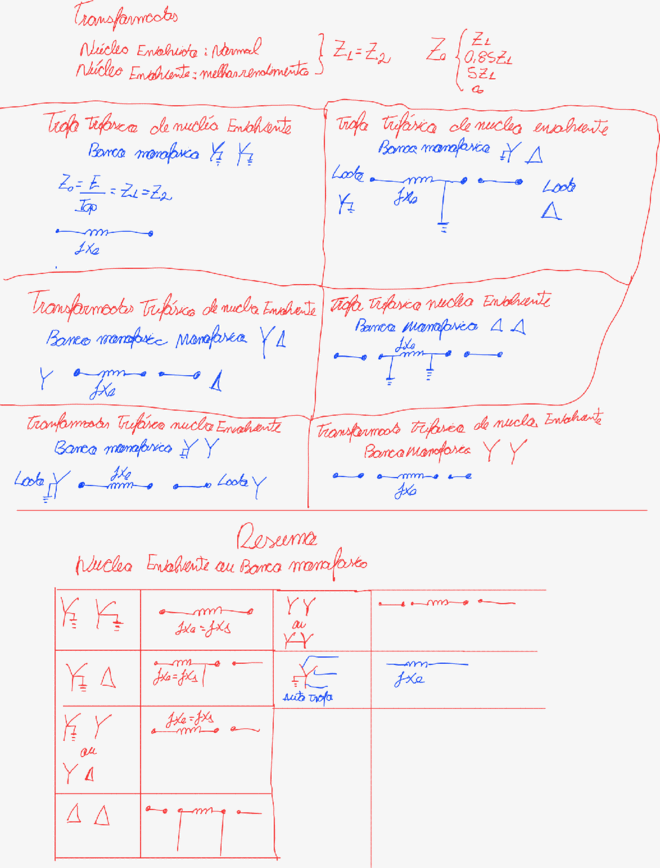 Transformadores
Núcleo Envolvido: Normal
Núcleo Envolvente: melhor rendimento
Z1 = Z2
Z0
Z1
0,85Z1
5Z1
∞
Trafo Trifásico de núcleo Envolvente
Banco monofásico Y Y
Z0 = E/Iop = Z1 = Z2
jXe
Trafo trifásico de nucleo envolvente
Banco monofasico Y Δ
Lado
Y
jXe
Lado
Δ
Transformados Trifásico de nucleo Envolvente
Banco monofasic Monofasico Y Δ
Y
Δ
jXe
Trafo Trifásico nucleo Envolvente
Banco Monofásico Δ Δ
jXe
Tranformados Trifásico nucleo Envolvente
Banco monofásico Y Y
Lado Y
jXe
Lado Y
Transformado trifasico de nucleo Envolvente
Banco Monofasico Y Y
jXe
Resumo
Nucleo Envolvente ou Banco monofasico
Y Y
jXe = jX1
Y Y
ou
Y Y
Y Δ
jXe = jX1
auto trafo
jXe
Y Y
ou
Y Δ
jXe = jX1
Δ Δ